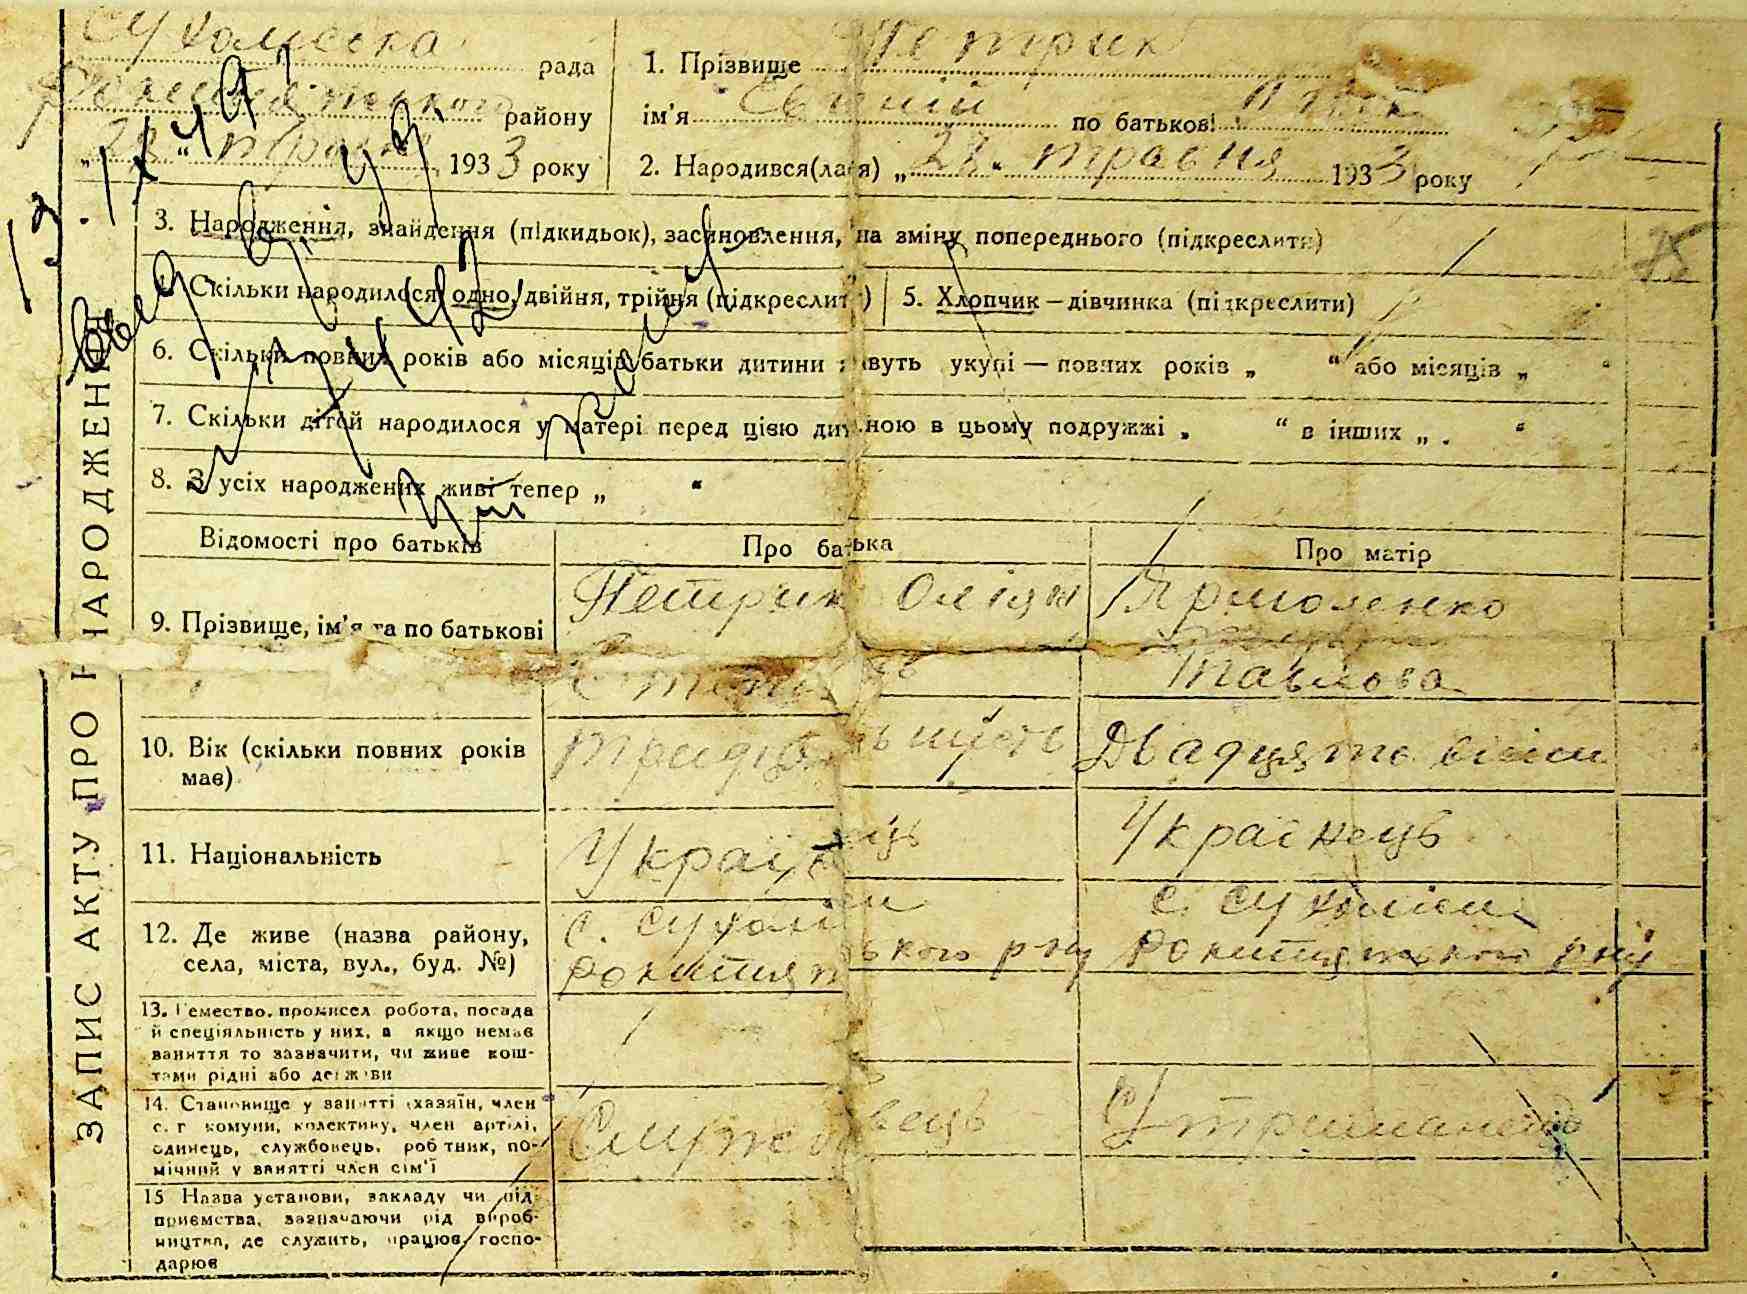 Сухоліська рада
Рокитнянського району
"28" травня 1933 року
1. Прізвище Петрик
ім'я Євгеній по батькові
2. Народився(лася) „28" травня 1933 року
3. Народження, знайдення (підкидьок), засиновлення, на зміну попереднього (підкреслити)
Скільки народилося одно, двійня, трійня (підкреслити) 5. Хлопчик — дівчинка (підкреслити)
6. Скільки повних років або місяців батьки дитини живуть укупі — повних років „ “ або місяців „ “
7. Скільки дітей народилося у матері перед цією дитиною в цьому подружжі „ “ в інших „ . “
8. З усіх народжених живі тепер „ “
Відомості про батьків Про батька Про матір
9. Прізвище, ім'я та по батькові Петрик Оліян Ярмоленко
Павлова
10. Вік (скільки повних років має) Тридцять шість Двадцять вісім
11. Національність Українець Українець
12. Де живе (назва району, села, міста, вул., буд. №) с. Сухоліси Рокитнянського р-ну с. Сухоліси Рокитнянського р-ну
13. Ремество, промисел робота, посада
й спеціяльність у них, а якщо немає
заняття то зазначити, чи живе кош-
тами рідні або держави
14. Становище у занятті (хазяїн, член
с. г. комуни, колективу, член артілі,
одинець, службовець, робітник, по-
мічний у занятті член сім'ї Службовець Утриманець
15 Назва установи, закладу чи під-
приємства, зазначаючи рід вироб-
ництва, де служить, працює, госпо-
дарює
ЗАПИС АКТУ ПРО НАРОДЖЕННЯ